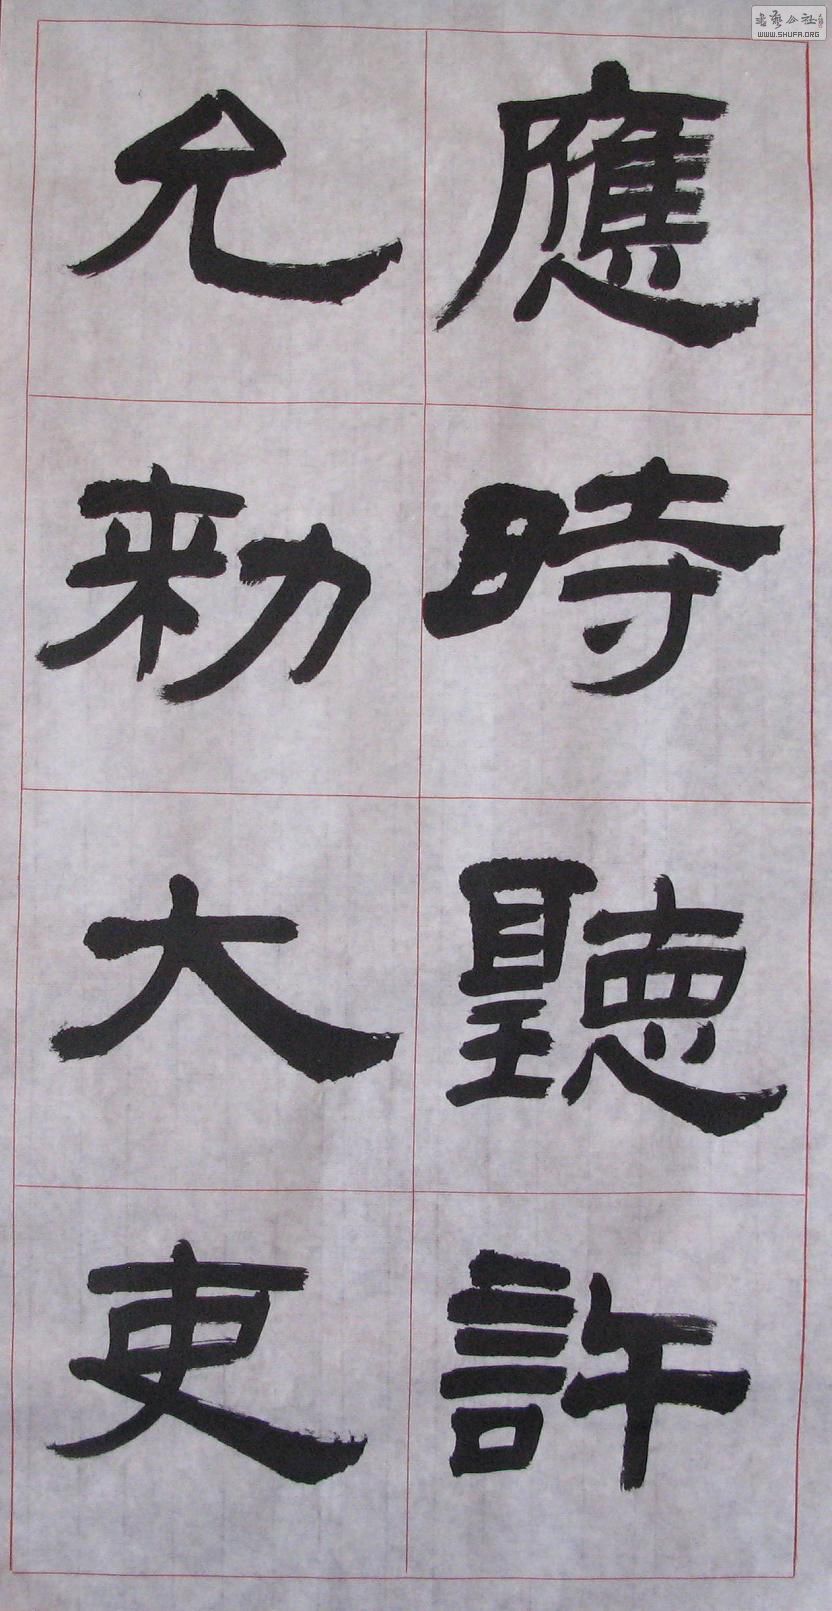 應時聽許
允勑大吏
WWW.SHUFA.ORG